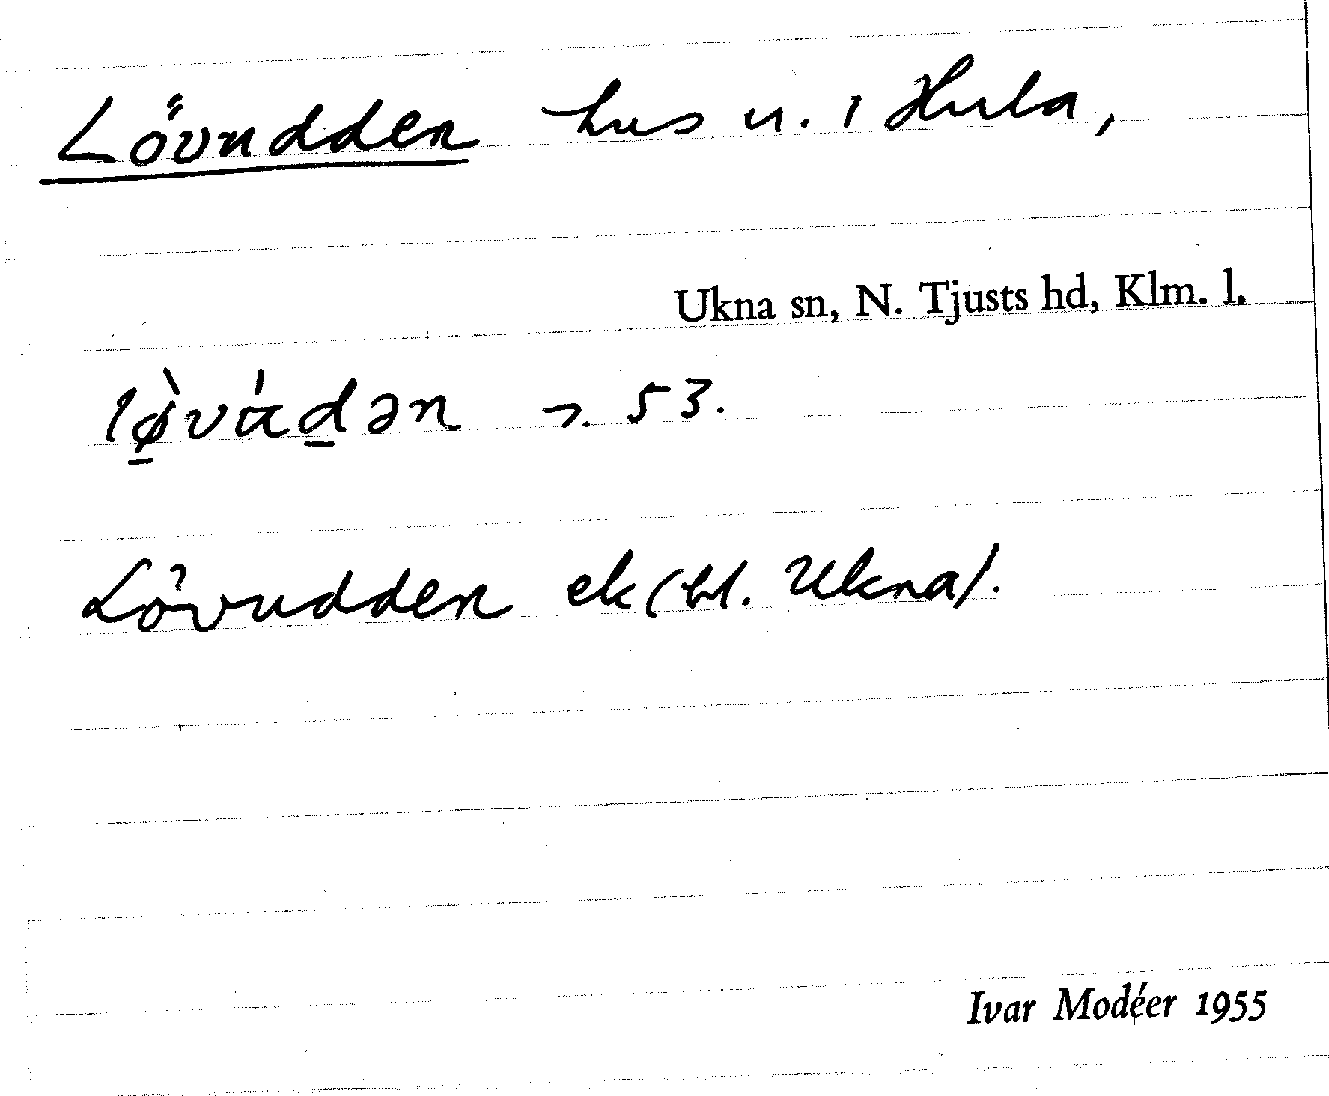 Lövudden hus n. i Hula,
Ukna sn, N. Tjusts hd, Klm. l.
lø̠̀vα̍d̠ən 53.
Lövudden ek (bl. Ukna).
Ivar Modéer 1955